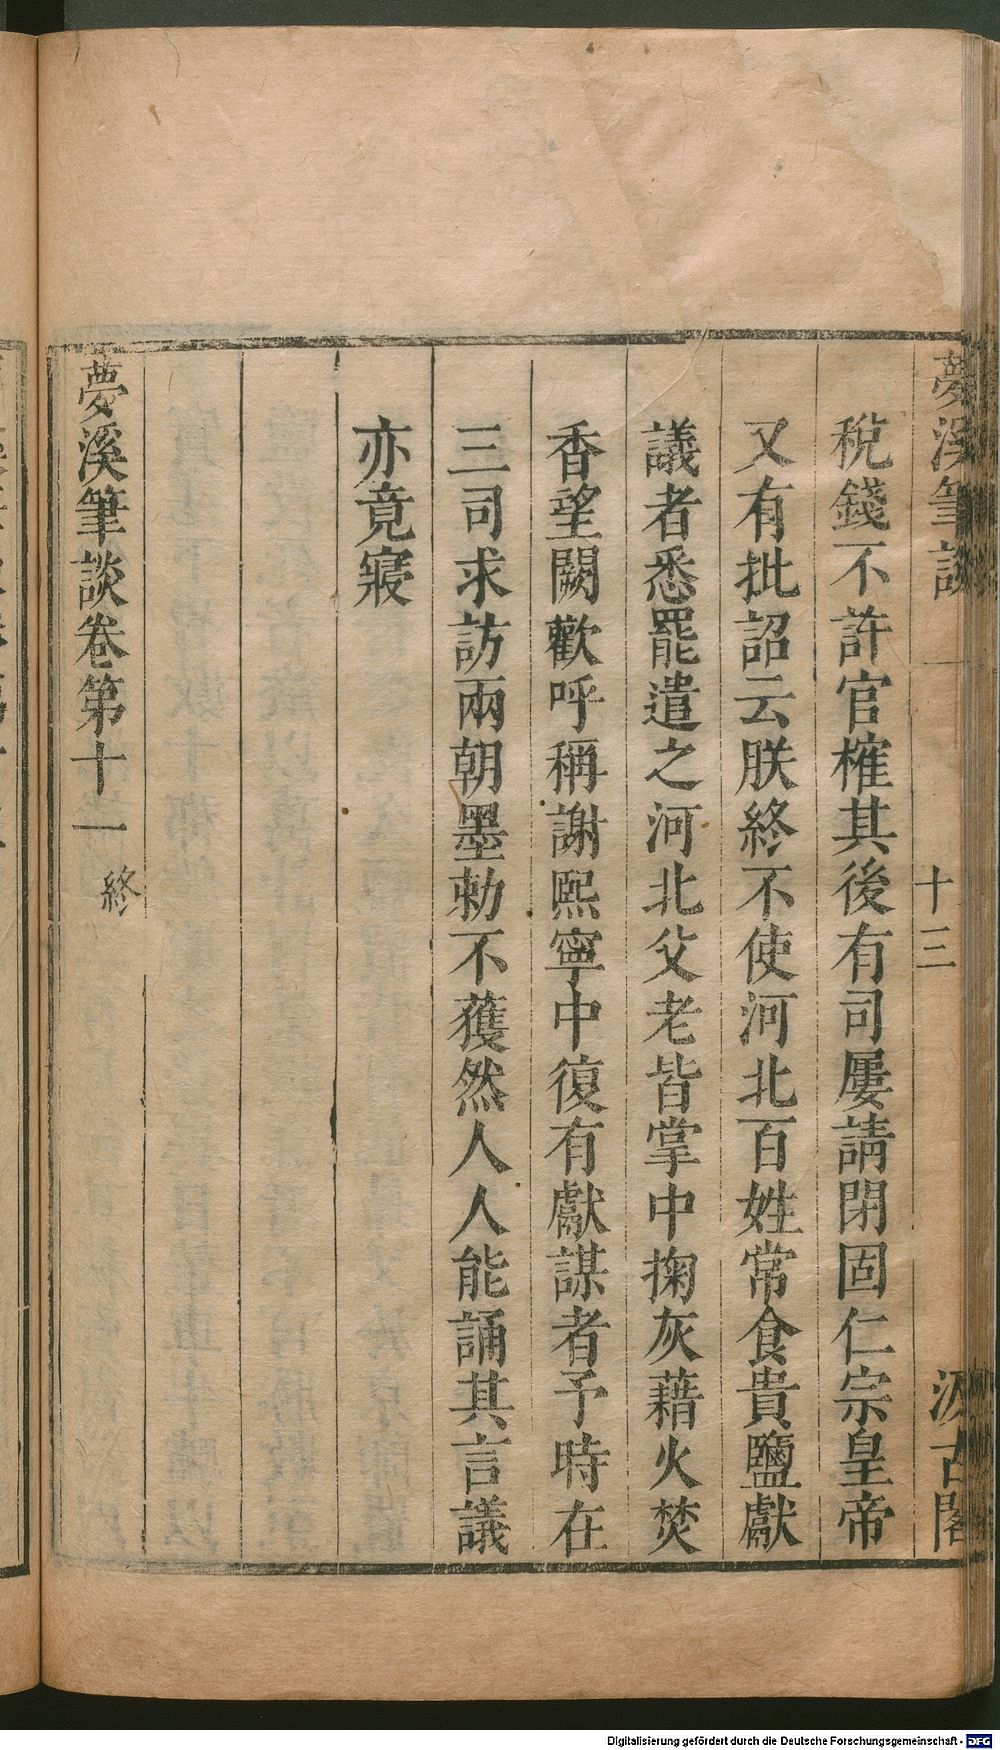 夢溪筆談 十三 汲古閣
稅錢不許官榷其後有司屢請閉固仁宗皇帝
又有批詔云朕終不使河北百姓常食貴鹽獻
議者悉罷遣之河北父老皆掌中掬灰藉火焚
香望闕歡呼稱謝熙寧中復有獻謀者予時在
三司求訪兩朝墨勅不獲然人人能誦其言議
亦竟寢
夢溪筆談卷第十一 終
Digitalisierung gefördert durch die Deutsche Forschungsgemeinschaft - DFG